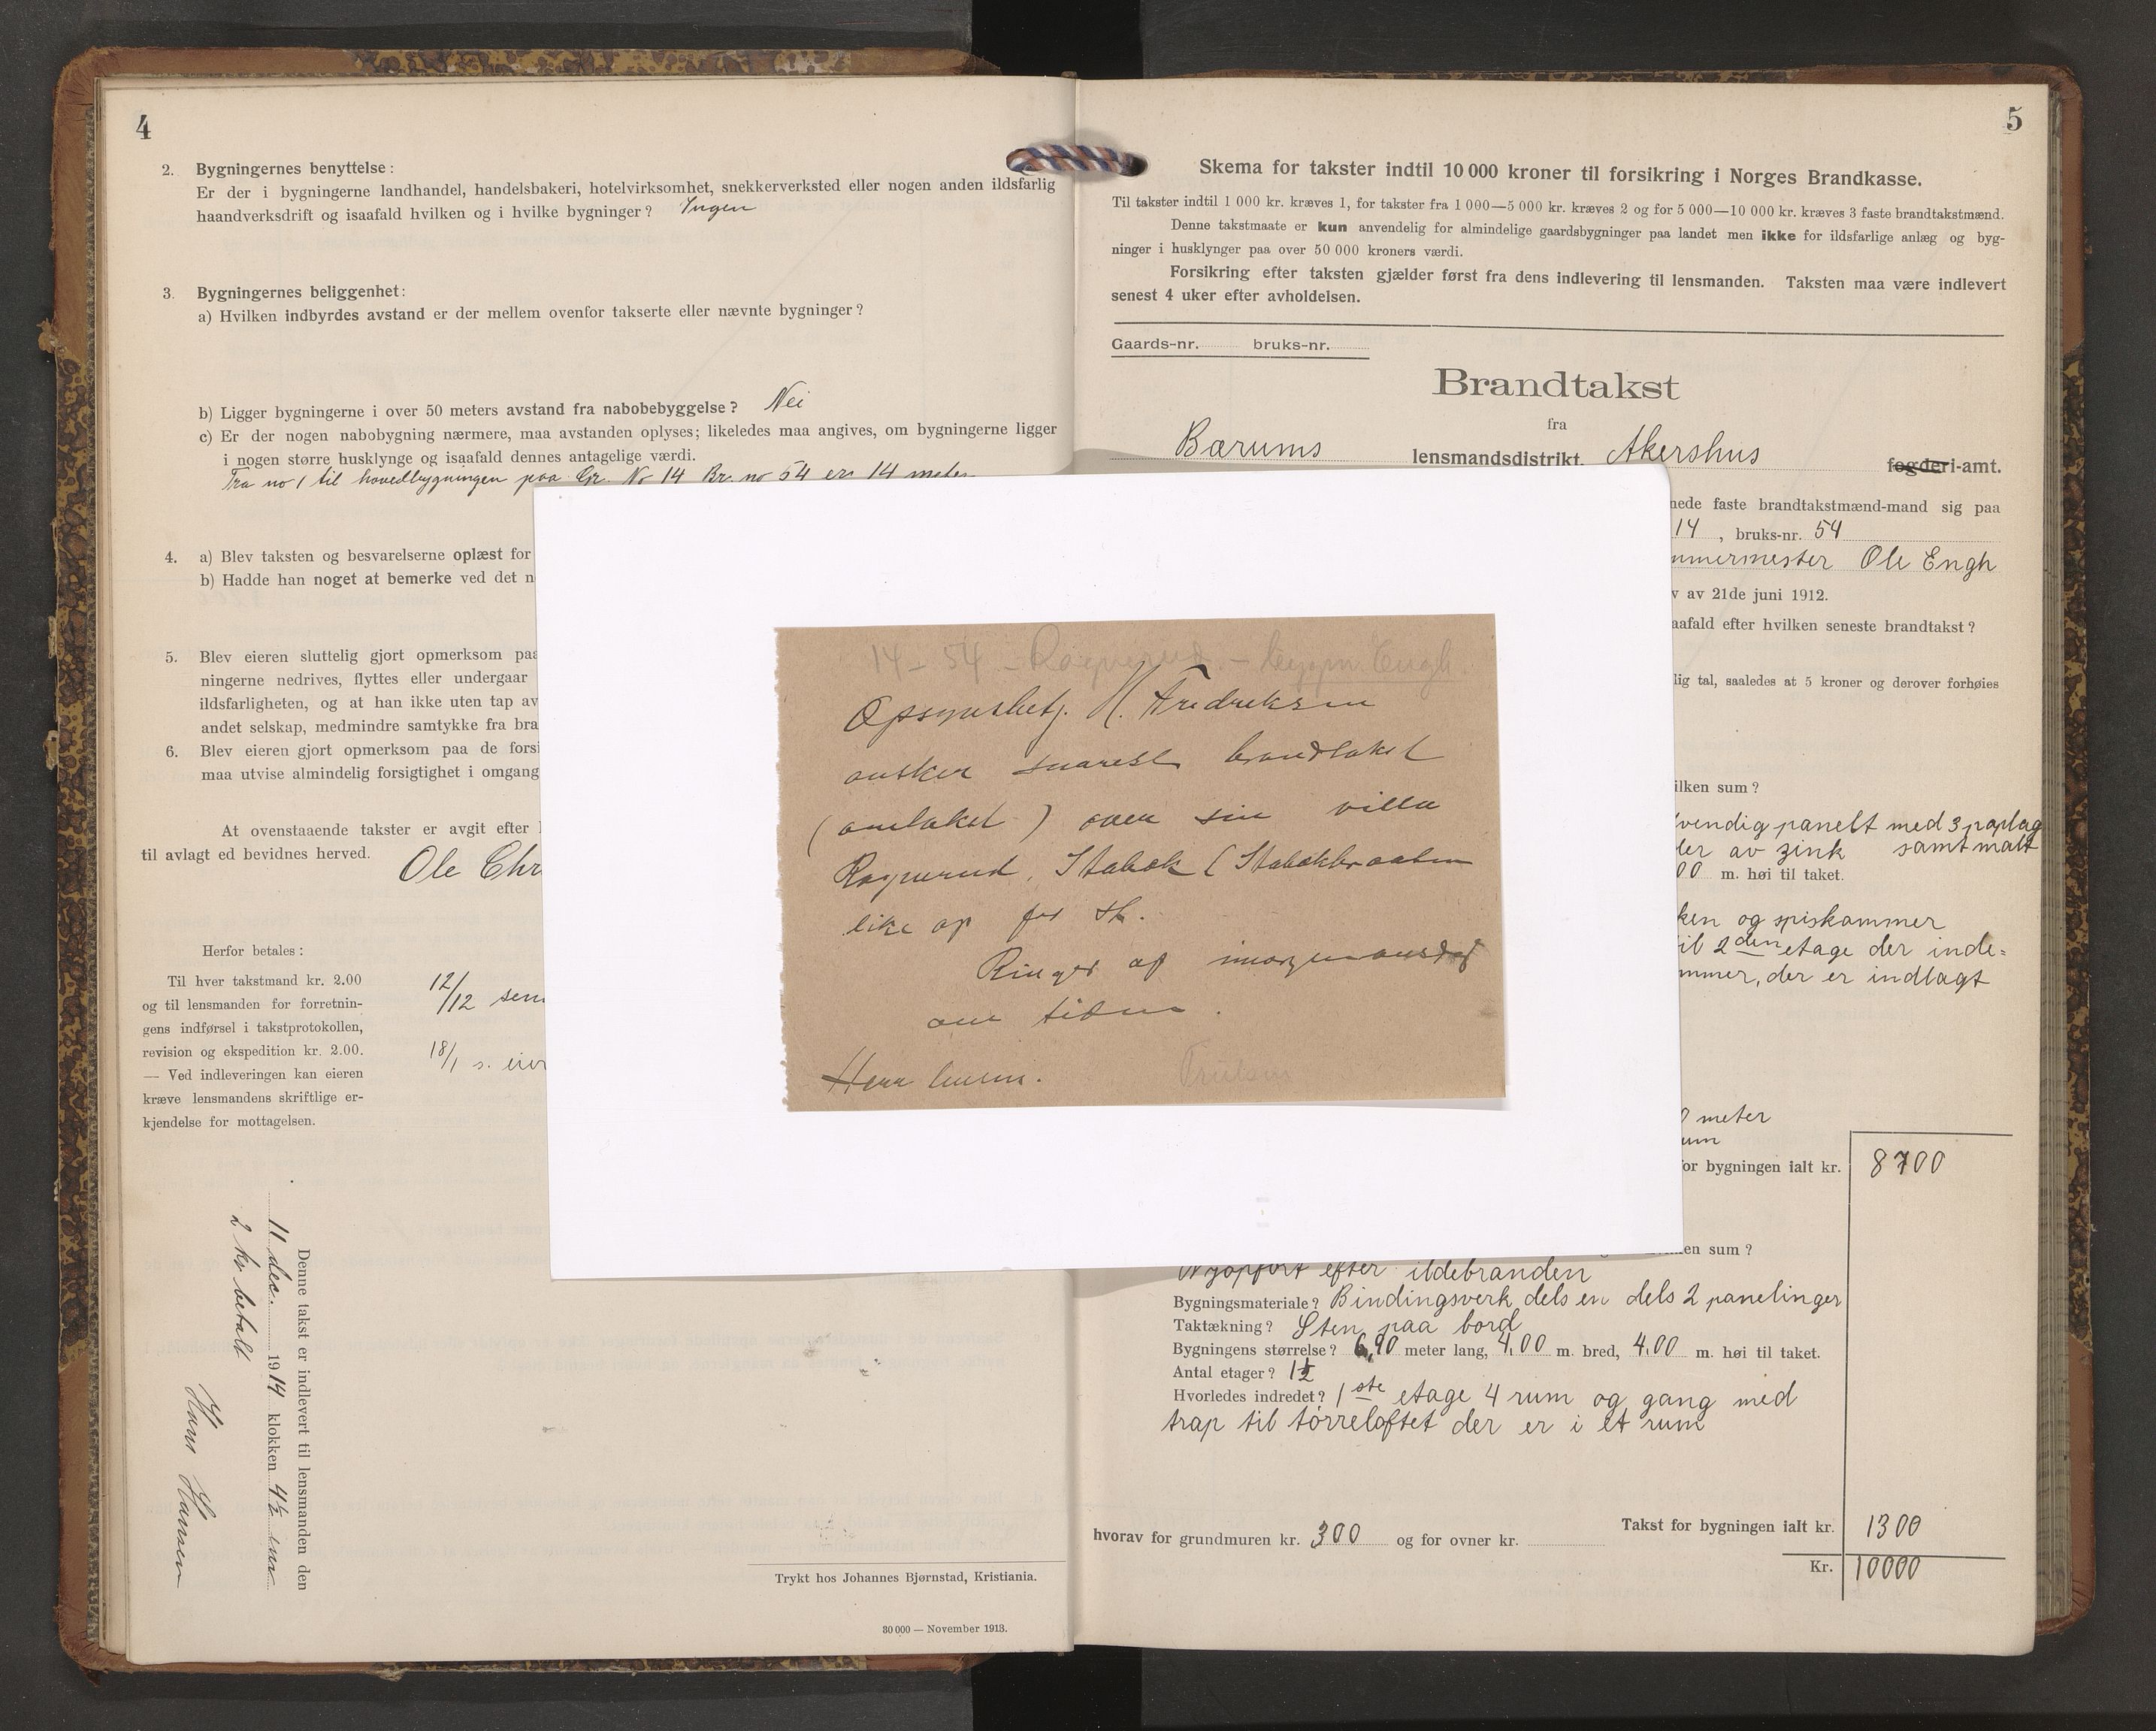 4
2. Bygningernes benyttelse:
Er der i bygningerne landhandel, handelsbakeri, hotelvirksomhet, snekkerverksted eller nogen anden ildsfarlig
haandverksdrift og isaafald hvilken og i hvilke bygninger? Ingen
3. Bygningernes beliggenhet:
a) Hvilken indbyrdes avstand er der mellem ovenfor takserte eller nævnte bygninger?
b) Ligger bygningerne i over 50 meters avstand fra nabobebyggelse? Nei
c) Er der nogen nabobygning nærmere, maa avstanden oplyses; likeledes maa angives, om bygningerne ligger
i nogen større husklynge og isaafald dennes antagelige værdi.
Fra no 1 til hovedbygningen paa Gr. No 14 Br. no 54 er 14 meter
4. a) Blev taksten og besvarelserne oplæst for
b) Hadde han noget at bemerke ved det
5. Blev eieren sluttelig gjort opmerksom paa
ningerne nedrives, flyttes eller undergaar
ildsfarligheten, og at han ikke uten tap av
andet selskap, medmindre samtykke fra
6. Blev eieren gjort opmerksom paa de
maa utvise almindelig forsigtighet i omgang
At ovenstaaende takster er avgit efter
til avlagt ed bevidnes herved.
Ole Chr
Herfor betales:
Til hver takstmand kr. 2.00
og til lensmanden for forretnin-
gens indførsel i takstprotokollen,
revision og ekspedition kr. 2.00.
— Ved indleveringen kan eieren
kræve lensmandens skriftlige er-
kjendelse for mottagelsen.
12/12
18/1 s.
Denne takst er indlevert til lensmanden den
11 dec. 1914 klokken 4½
2 kr betalt
Hans Hansen
Trykt hos Johannes Bjørnstad, Kristiania.
30 000 — November 1913.
14 - 54 - - Engh
H. Fredriksen
ønsker snarest brandtakst
(omtakst) over sin villa
Stabæk (Stabækbraaten
like op for st.
Ringer op
om tiden.
Herr
5
Skema for takster indtil 10 000 kroner til forsikring i Norges Brandkasse.
Til takster indtil 1 000 kr. kræves 1, for takster fra 1 000—5 000 kr. kræves 2 og for 5 000—10 000 kr. kræves 3 faste brandtakstmænd.
Denne takstmaate er kun anvendelig for almindelige gaardsbygninger paa landet men ikke for ildsfarlige anlæg og byg-
ninger i husklynger paa over 50 000 kroners værdi.
Forsikring efter taksten gjælder først fra dens indlevering til lensmanden. Taksten maa være indlevert
senest 4 uker efter avholdelsen.
Gaards-nr. bruks-nr.
Brandtakst
fra
Bærums lensmandsdistrikt, Akershus fogderi-amt.
nede faste brandtakstmænd-mand sig paa
14, bruks-nr. 54
mmermester Ole Engh
v av 21de juni 1912.
aafald efter hvilken seneste brandtakst?
lig tal, saaledes at 5 kroner og derover forhøies
ilken sum?
vendig panelt med 3 paplag
ler av zink samt malt
00 m. høi til taket.
ken og spiskammer
til 2den etage der inde=
mmer, der er indlagt
0 meter
um
for bygningen ialt kr. 8700
en sum?
Nyopført efter ildebranden
Bygningsmateriale? Bindingsverk dels en dels 2 panelinger
Taktækning? Sten paa bord
Bygningens størrelse? 6,90 meter lang, 4,00 m. bred, 4,00 m. høi til taket.
Antal etager? 1½
Hvorledes indredet? 1ste etage 4 rum og gang med
trap til tørreloftet der er i et rum
Takst for bygningen ialt kr. 1300
hvorav for grundmuren kr. 300 og for ovner kr.
Kr. 10000